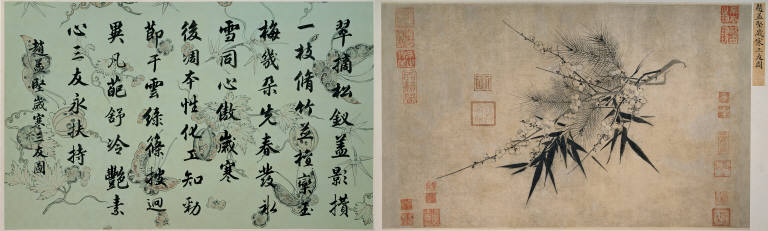 趙孟堅歲寒三友圖
翠摘松釵蓋影攢
一枝脩竹並檀欒玉
梅幾朵先春發冰
雪同心傲歲寒
後凋本性化工知勁
節干雲綠篠披迥
異凡葩舒冷艷素
心三友永扶持
趙孟堅歲寒三友圖